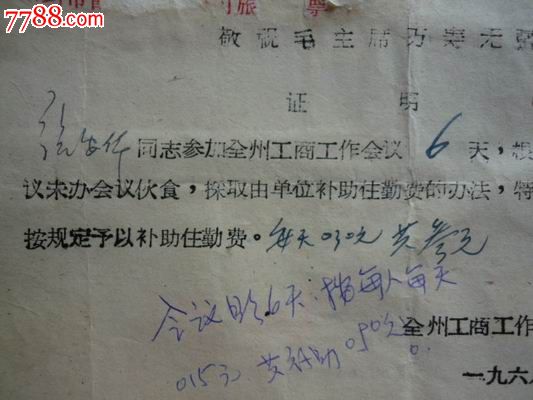 7788.com
旅 票
敬祝毛主席万寿无疆
证 明
同志参加全州工商工作会议 6 天，根
议未办会议伙食，採取由单位补助住勤费的办法，特
按规定予以补助住勤费。每天030元 共叁元
会议日 6天，按每人每天
015元，共补助0.90元。
全州工商工作
一九六八